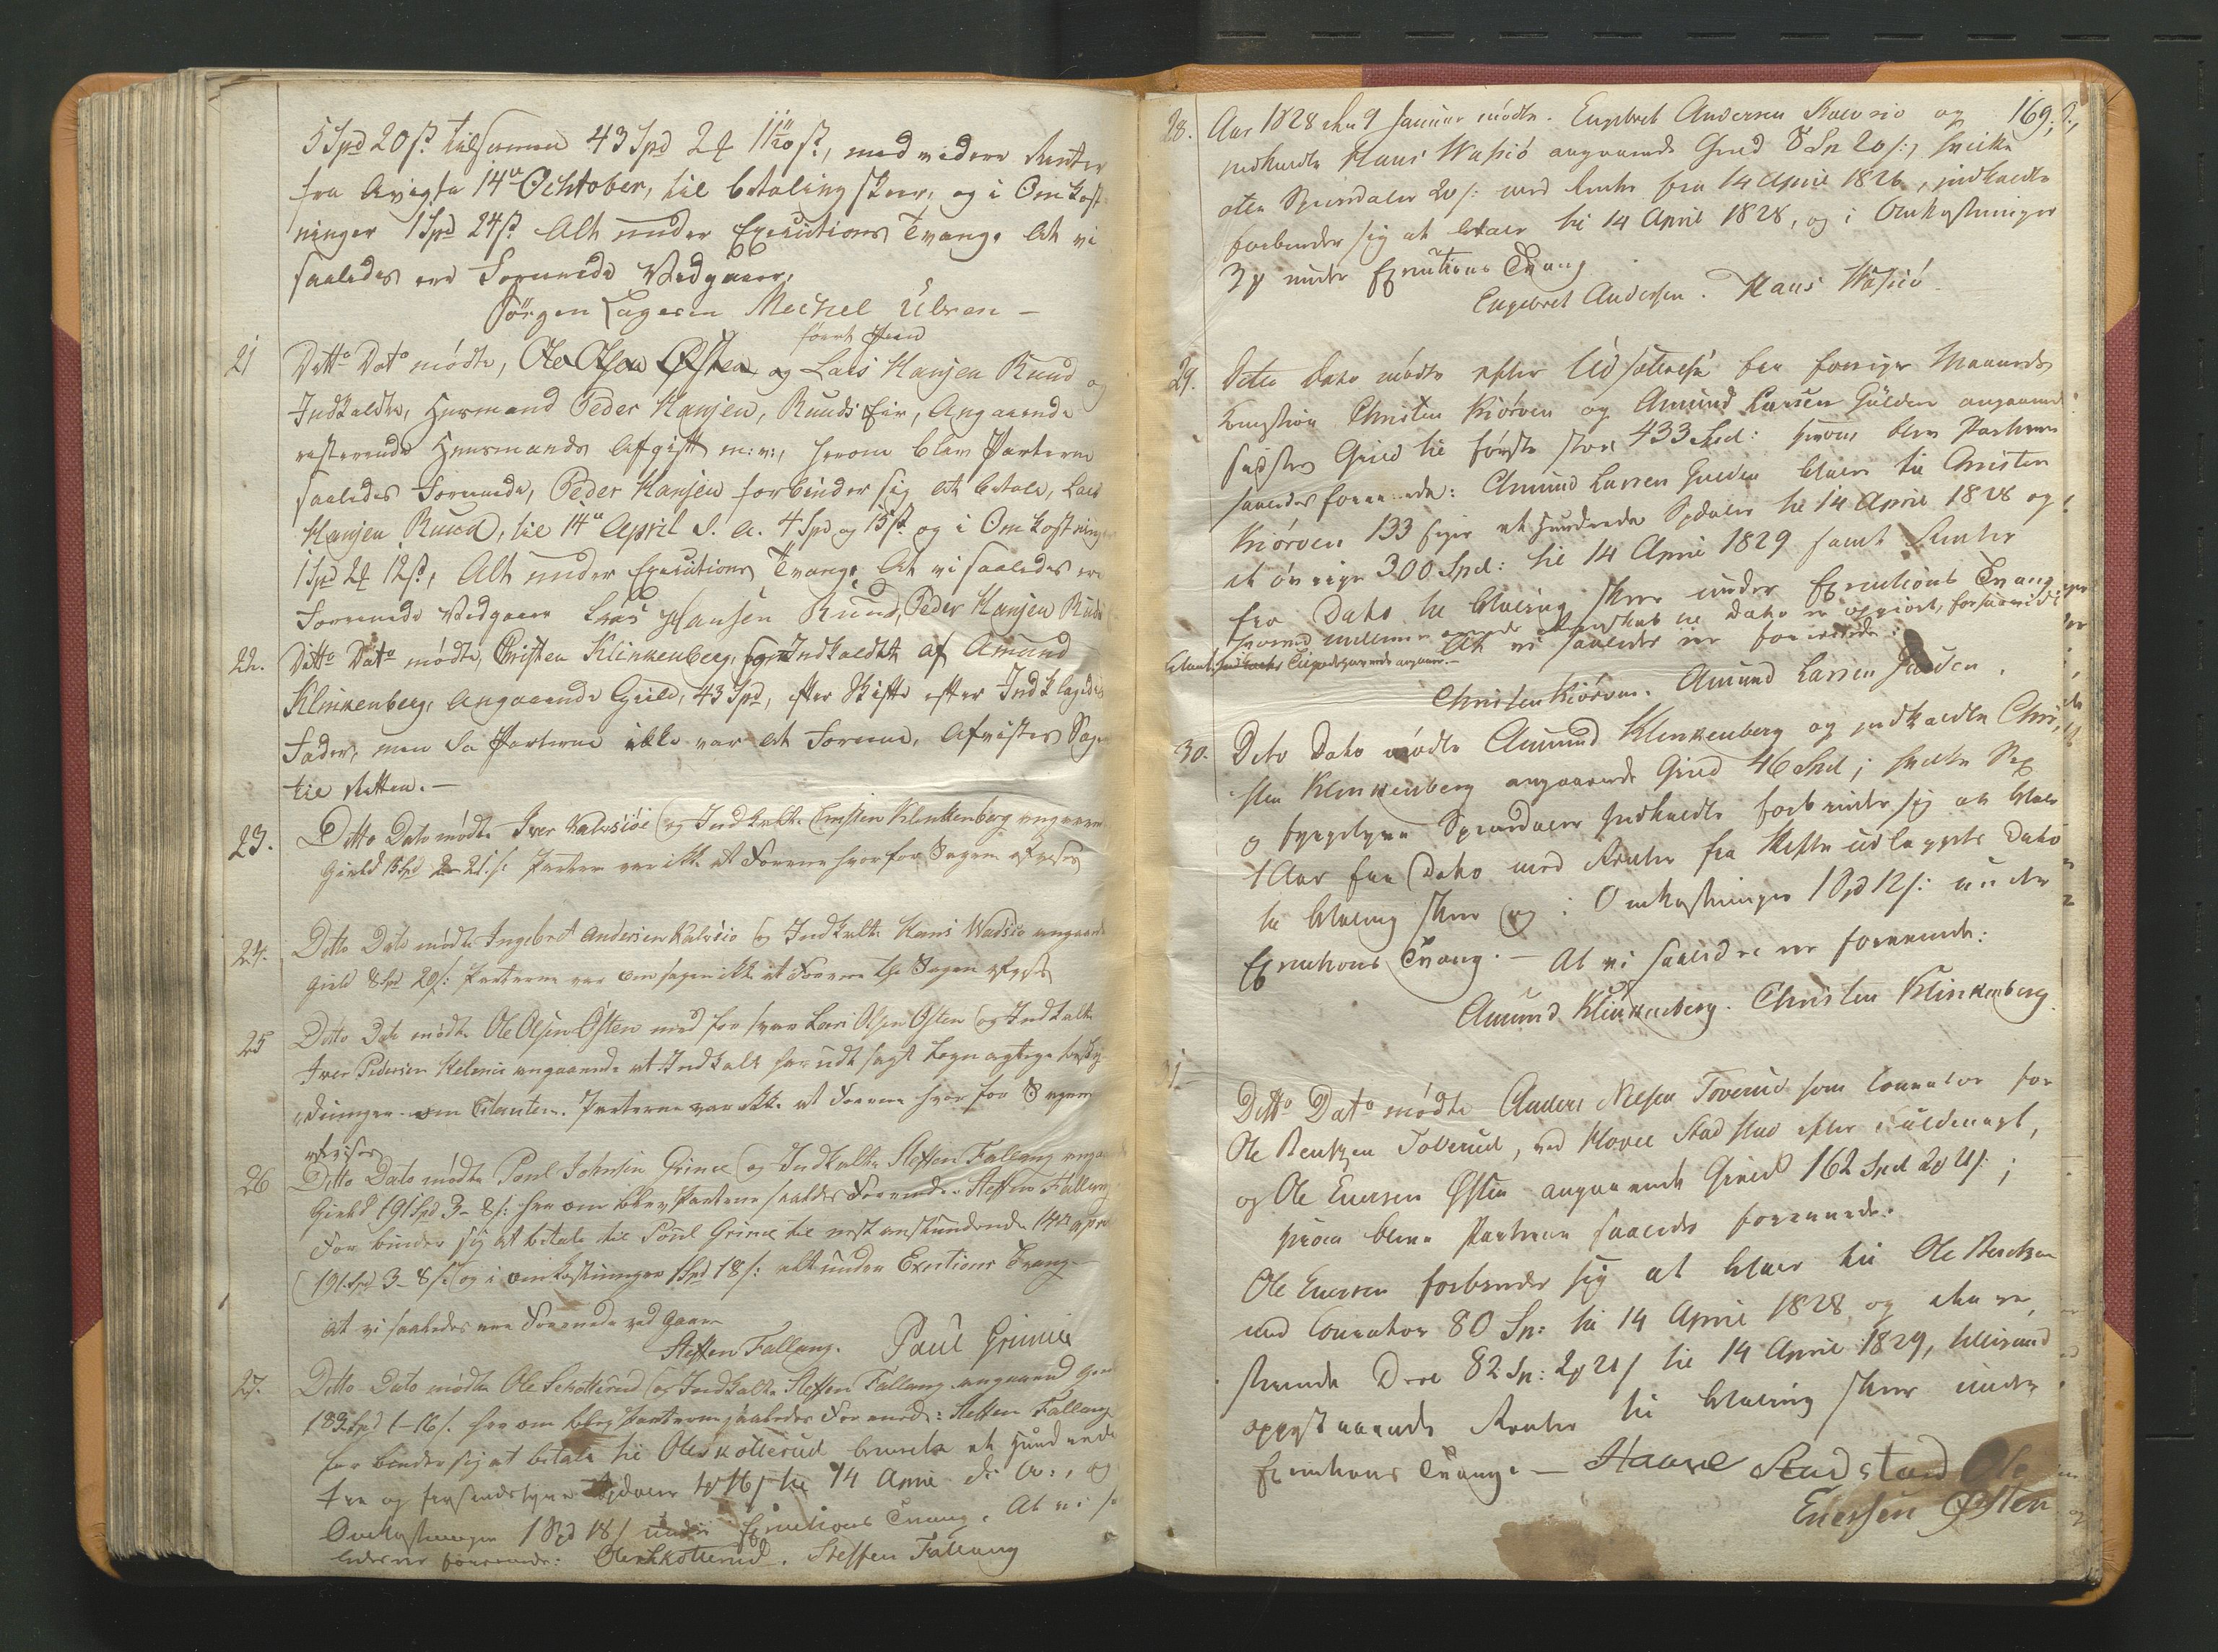 5 Spd 20 s. tilsammen 43 Spd 2 11 s., med videre Renter
fra Avigte 14de Ochtober, til betaling skeer, og i Omkost
ninger 1 Spd 24 s. Alt under Executions Tvang. At vi
saaledes ere Forenede Vedgaaer,
Jörgen Lagesen Mechel Ulsen —
21 Ditto Dato mødte, Ole Olsen Østen og Lars Hansen Ruud og
Indkaldte, Huusmand Peder Hansen, Ruuds Eie, Angaaende
resterende Huusmands Afgift m: v:, herom blev Parterne
saaledes Forenede, Peder Hansen forbinder sig at betale, Lars
Hansen Ruud, til 14de April d. A. 4 Spd og 15 s. og i Omkostninger
1 Spd 2 12 s., Alt under Executions Tvang. At vi saaledes ere
Forenede Vedgaaer Lras Hansen Ruud, Peder Hansen Ruds
22. Ditto Dato mødte, Christen Klinkenberg, Indkaldt af Amund
Klinkenberg, Angaaende Gield, 43 Spd, efter Skifte efter Indklagedes
Fader, men da Parterne ikke var at Forene, Afvistes Sagen
til Retten. —
23. Ditto Dato mødte Iver Kalvsiøe og Indkalte Christen Klinkenberg angaaende
Gield 15 Spd 2 - 21 s: Parterne var ikke at Forene hvorfor Sagen afvises
24. Ditto Dato mødte Ingebret Andersen Kalvsio og Indkalte Hans Wadsio angaaende
Gield 8 Spd 20 s: Parterne var om sagen ikke at Forene Sagen
25 Ditto Dato mødte Ole Olsen Østen med forsvar Lars Olsen Østen og Indkalte
Iver Pedersen angaaende at Indkalte har udsagt løgnagtige beskyl-
dninger om Citanten. Parterne var ikke at Forene hvorfor Sagen
afvises
26 Ditto Dato mødte Poul Johnsen Grinie og Indkalte Steffen Fallang angaaende
Gield 191 Spd 3 - 8 s: her om blev Parterne saaledes Forenede. Steffen Fallang
For binder sig at betale til Poul Grinie til nest anstundende 14de April
191 Spd 3 - 8 s: og i omkostninger 1 Spd 18 s: alt under Exutions Tvang —
at vi saaledes ere Forenede ved gaaer
Steffen Fallang. Paul Grinie
27. Ditto Dato mødte Ole Skotterud og Indkalte Steffen Fallang angaaend Gield
183 Spd 1 - 16 s. her om blev Parterne saaledes Forenede: Steffen Fallang
for binder sig at betale til Ole Skotterud et Hundrede
tre og firsindstyve Spdaler 1 16 s til 14 April d: A:, og
Omkostninger 1 Spd 18 s under Exutions Tvang. At vi saa
ledes er forenede: Ole Skotterud. Steffen Fallang
169.
28. Aar 1828 den 9 Januar mødte. Engebret Andersen Kalvsio og
indkaldte Hans Wasiö angaaende Gield 8 Sp 20 s:, hvilke
otte Speciedaler 20 s: med Renter fra 14 April 1826, indkaldte
forbinder sig at betale til 14 April 1828, og i Omkostninger
3 under Exutions Tvang
Engebret Andersen. Hans Wasiö
29. Ditto Dato mødte efter Udsættelse fra forrige Maaneds
Christen Kiörven og Amund Larsen Gulden angaaende
sidstes Gield til første stor 433 Spd: herom blev Parterne
saaledes forenede: Amund Larsen Gulden betaler til Christen
Kiörven 133 siger et hundrede Spdaler til 14 April 1828 og
de øvrige 300 Spd: til 14 April 1829 samt Renter
fra Dato til betaling skeer under Exutions Tvang
At vi saaledes ere forenede:
Christen Kiörven. Amund Larsen Gulden
30. Dito Dato mødte Amund Klinkenberg og indkaldte Chri-
sten Klinkenberg angaaende Gield 46 Spd; hvilke Sex
og fyrgetyve Speciedaler Indkaldte forbinder sig at betale
1 Aar fra Dato med Renter fra Skifte udlæggets Dato
til betaling skeer og i Omkostninger 1 Spd 12 s: under
Exutions Tvang. — At vi saaledes ere forenede:
Amund Klinkenberg. Christen Klinkenberg
31 Ditto Dato mødte Anders Nielsen Toverud som Courator for
Ole Bentzen Toverud, ved Hovel Stadstad efter Fuldmagt,
og Ole Evensen Østen angaaende Gield 162 Spd 2 21 s:;
herom bleve Parterne saaledes forenede.
Ole Evensen forbinder sig at betale til Ole Bentzen
med Courator 80 Sp: til 14 April 1828, og den re-
sterende Deel 82 Sp: 2 21 s til 14 April 1829, tilligemed
opgst Renter til betaling skeer under
Exutions Tvang. — Haavel Stadstad Ole
Evensen Østen